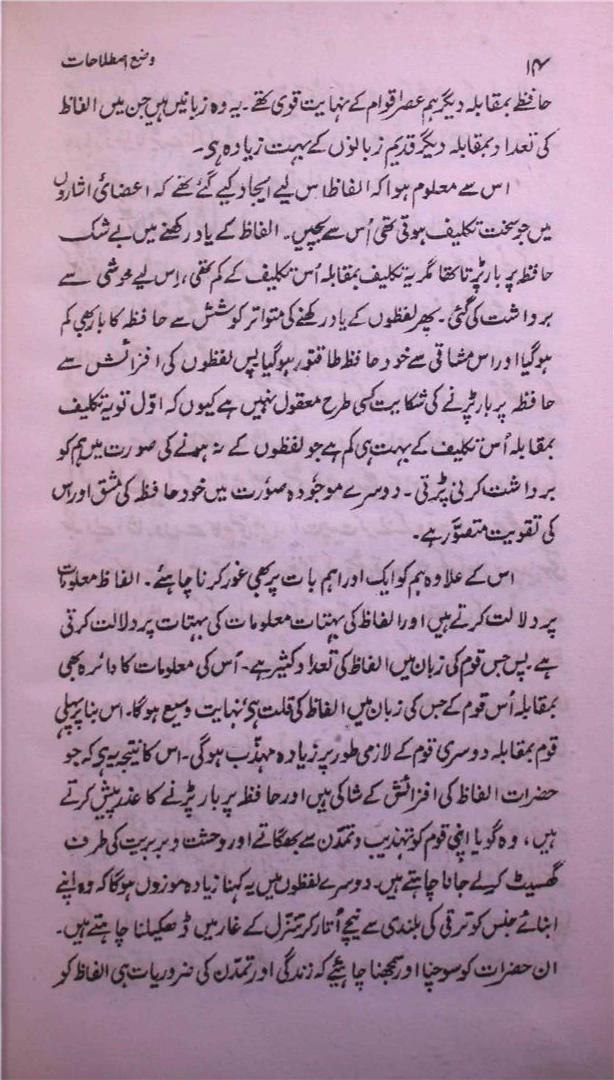 ۱۴ وضع اصطلاحات
حافظے بمقابلہ دیگر ہم عصر اقوام کے نہایت قوی تھے۔ یہ وہ زبانیں ہیں جن میں الفاظ
کی تعداد بمقابلہ دیگر قدیم زبانوں کے بہت زیادہ ہی۔
اس سے معلوم ہوا کہ الفاظ اس لیے ایجاد کیے گئے تھے کہ اعضائی اشاروں
میں جو سخت تکلیف ہوتی تھی اُس سے بچیں۔ الفاظ کے یاد رکھنے میں بے شک
حافظہ پر بار پڑتا تھا مگر یہ تکلیف بمقابلہ اُس تکلیف کے کم تھی، اس لیے خوشی سے
برداشت کی گئی۔ پھر لفظوں کے یاد رکھنے کی متواتر کوشش سے حافظہ کا بار بھی کم
ہو گیا اور اس مشاقی سے خود حافظہ طاقتور ہو گیا پس لفظوں کی افزائش سے
حافظہ پر بار پڑنے کی شکایت کسی طرح معقول نہیں ہے کیوں کہ اوّل تو یہ تکلیف
بمقابلہ اُس تکلیف کے بہت ہی کم ہے جو لفظوں کے نہ ہونے کی صورت میں ہم کو
برداشت کرنی پڑتی۔ دوسرے موجودہ صورت میں خود حافظہ کی مشق اور اس
کی تقویت متصوّر ہے۔
اس کے علاوہ ہم کو ایک اور اہم بات پر بھی غور کرنا چاہئے۔ الفاظ معلومات
پر دلالت کرتے ہیں اور الفاظ کی بہتات معلومات کی بہتات پر دلالت کرتی
ہے۔ پس جس قوم کی زبان میں الفاظ کی تعداد کثیر ہے۔ اُس کی معلومات کا دائرہ بھی
بمقابلہ اُس قوم کے جس کی زبان میں الفاظ کی قلت ہی نہایت وسیع ہوگا۔ اس بنا پر پہلی
قوم بمقابلہ دوسری قوم کے لازمی طور پر زیادہ مہذّب ہوگی۔ اس کا نتیجہ یہ ہی کہ جو
حضرات الفاظ کی افزائش کے شاکی ہیں اور حافظہ پر بار پڑنے کا عذر پیش کرتے
ہیں، وہ گویا اپنی قوم کو تہذیب و تمدّن سے بھگاتے اور وحشت و بربریت کی طرف
گھسیٹ کر لے جانا چاہتے ہیں۔ دوسرے لفظوں میں یہ کہنا زیادہ موزوں ہوگا کہ وہ اپنے
ابنائے جنس کو ترقی کی بلندی سے نیچے اُتار کر تنزل کے غار میں ڈھکیلنا چاہتے ہیں۔
ان حضرات کو سوچنا اور سمجھنا چاہئیے کہ زندگی اور تمدّن کی ضروریات ہی الفاظ کو